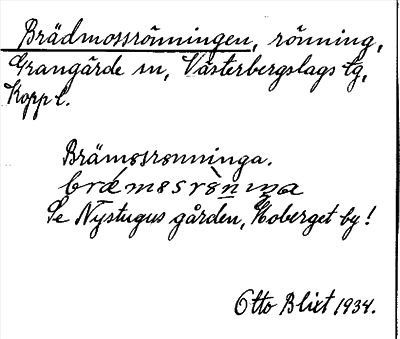 Brädmossrönningen, rönning,
Grangärde sn, Västerbergslags tg,
Kopp l.
Brämosrønninga.
Se Nystugus gården, Hoberget by!
Otto Blixt 1934.